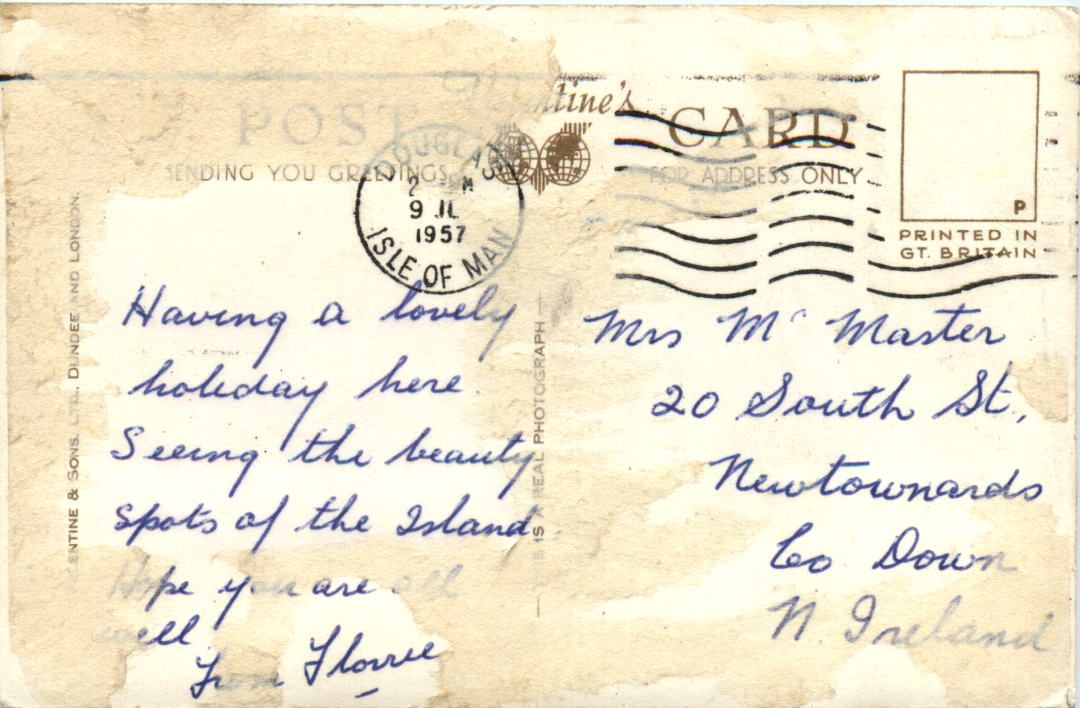 POST CARD
Valentine's
SENDING YOU GREETINGS
FOR ADDRESS ONLY
DOUGLAS
2 M
9 JL
1957
ISLE OF MAN
P
PRINTED IN
GT. BRITAIN
ENTINE & SONS. LTD., DUNDEE AND LONDON.
THIS IS A REAL PHOTOGRAPH
Having a lovely
holiday here.
Seeing the beauty
spots of the Island
Hope you are all
well.
From Florrie
Mrs Mc Master
20 South St.,
Newtownards
Co Down
N. Ireland